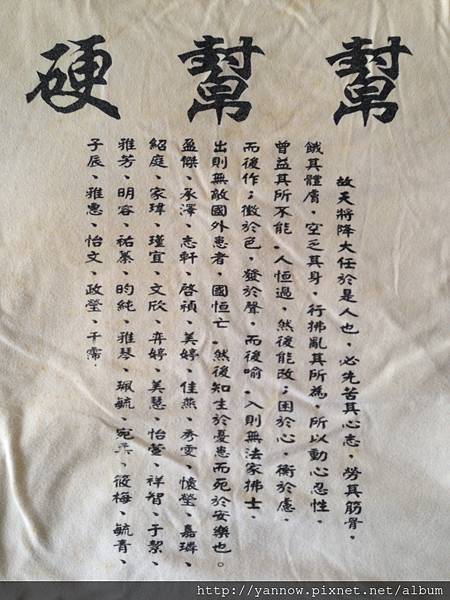 硬幫幫
故天將降大任於是人也，必先苦其心志，勞其筋骨，
餓其體膚，空乏其身，行拂亂其所為，所以動心忍性，
曾益其所不能。人恆過，然後能改；困於心，衡於慮，
而後作；徵於色，發於聲，而後喻。入則無法家拂士，
出則無敵國外患者，國恆亡。然後知生於憂患而死於安樂也。
盈傑、承澤、志軒、啓禎、美婷、佳燕、秀雯、懷瑩、嘉璘、
紹庭、家瑋、瑾宜、文欣、弈婷、美慧、怡萱、祥智、于絜、
雅芳、明容、祐蓁、昀純、雅琴、珮毓、宛柔、筱梅、毓青、
子辰、雅惠、怡文、政瑩、于霈.
http://yannow.pixnet.net/album